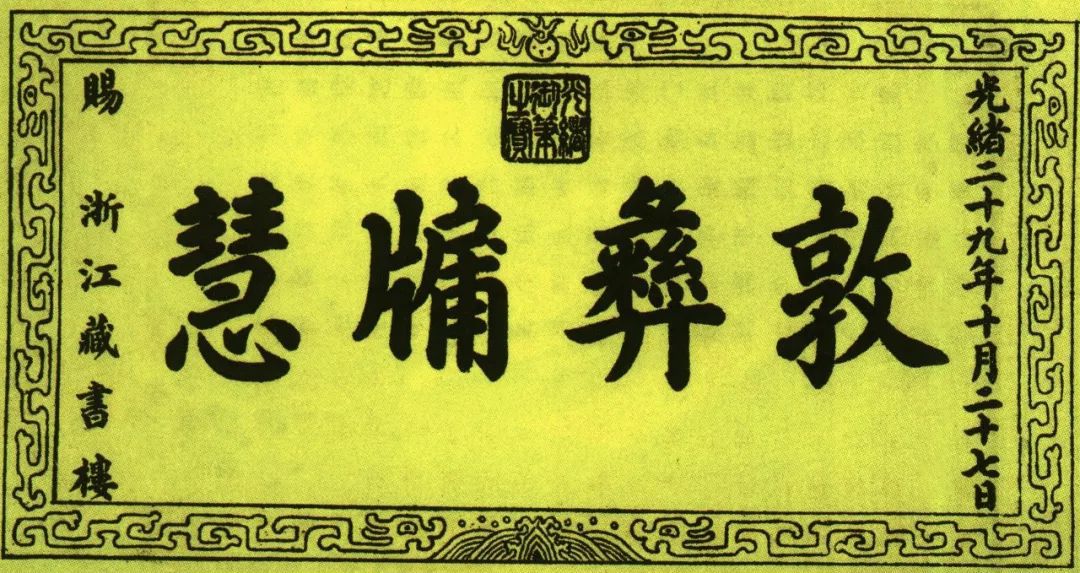 光緒二十九年十月二十七日
光緒
御筆
之寶
敦彝牖慧
賜 浙江藏書樓